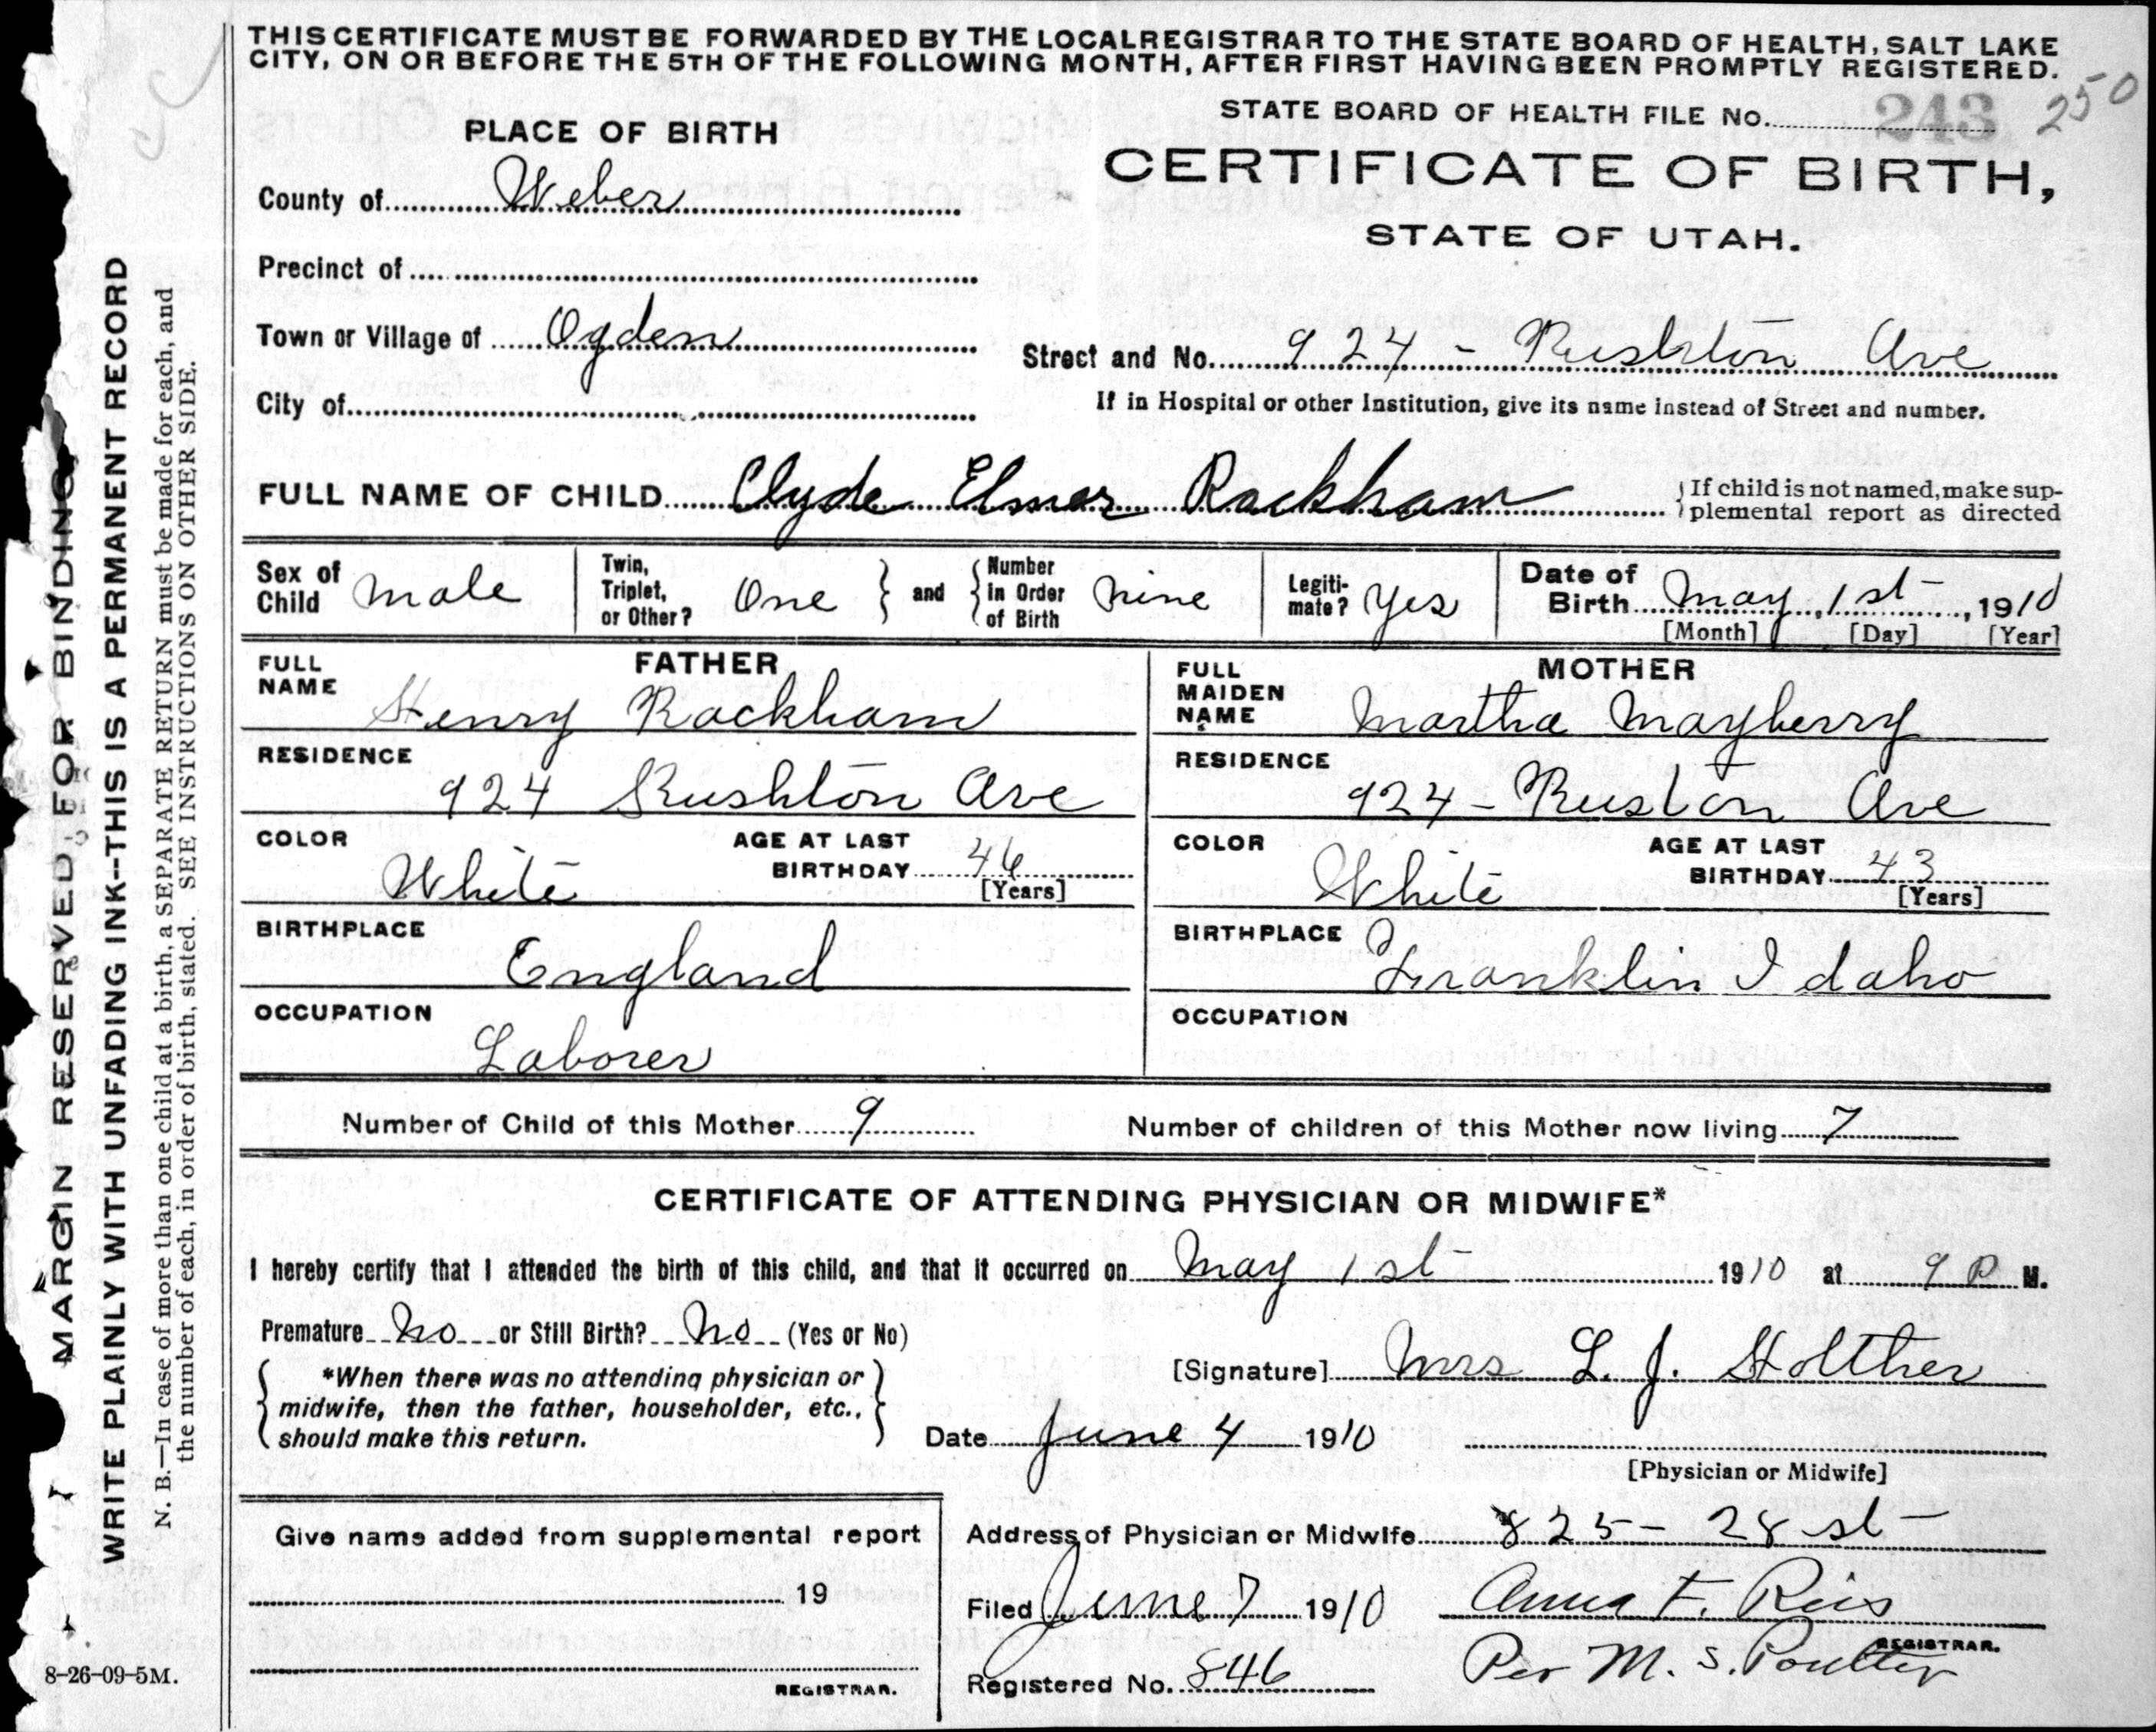 THIS CERTIFICATE MUST BE FORWARDED BY THE LOCAL REGISTRAR TO THE STATE BOARD OF HEALTH, SALT LAKE
CITY, ON OR BEFORE THE 5TH OF THE FOLLOWING MONTH, AFTER FIRST HAVING BEEN PROMPTLY REGISTERED.
STATE BOARD OF HEALTH FILE No. 243 250
PLACE OF BIRTH
CERTIFICATE OF BIRTH,
STATE OF UTAH.
County of Weber
Precinct of
Town or Village of Ogden
Street and No. 924 - Rushton Ave
City of
If in Hospital or other Institution, give its name instead of Street and number.
FULL NAME OF CHILD Clyde Elmer Rackham
If child is not named, make sup-
plemental report as directed
Sex of Child male
Twin, Triplet, or Other? One and Number in Order of Birth nine
Legiti-mate? Yes
Date of Birth May, 1st, 1910
[Month] [Day] [Year]
FATHER
FULL NAME Henry Rackham
RESIDENCE 924 Rushton Ave
COLOR White AGE AT LAST BIRTHDAY 46 [Years]
BIRTHPLACE England
OCCUPATION Laborer
MOTHER
FULL MAIDEN NAME Martha Mayberry
RESIDENCE 924 - Ruston Ave
COLOR White AGE AT LAST BIRTHDAY 43 [Years]
BIRTHPLACE Franklin Idaho
OCCUPATION
Number of Child of this Mother 9 Number of children of this Mother now living 7
CERTIFICATE OF ATTENDING PHYSICIAN OR MIDWIFE*
I hereby certify that I attended the birth of this child, and that it occurred on May 1st 1910 at 9 P M.
Premature No or Still Birth? No (Yes or No)
*When there was no attending physician or
midwife, then the father, householder, etc.,
should make this return.
[Signature] Mrs L. J. Holther
Date June 4 1910
[Physician or Midwife]
Give name added from supplemental report
19
REGISTRAR.
Address of Physician or Midwife 825 - 28 st
Filed June 7 1910 Anna F. Reis
REGISTRAR.
Registered No. 846 Per M. S. Poulter
MARGIN RESERVED FOR BINDING
WRITE PLAINLY WITH UNFADING INK--THIS IS A PERMANENT RECORD
N. B.—In case of more than one child at a birth, a SEPARATE RETURN must be made for each, and
the number of each, in order of birth, stated. SEE INSTRUCTIONS ON OTHER SIDE.
8-26-09-5M.